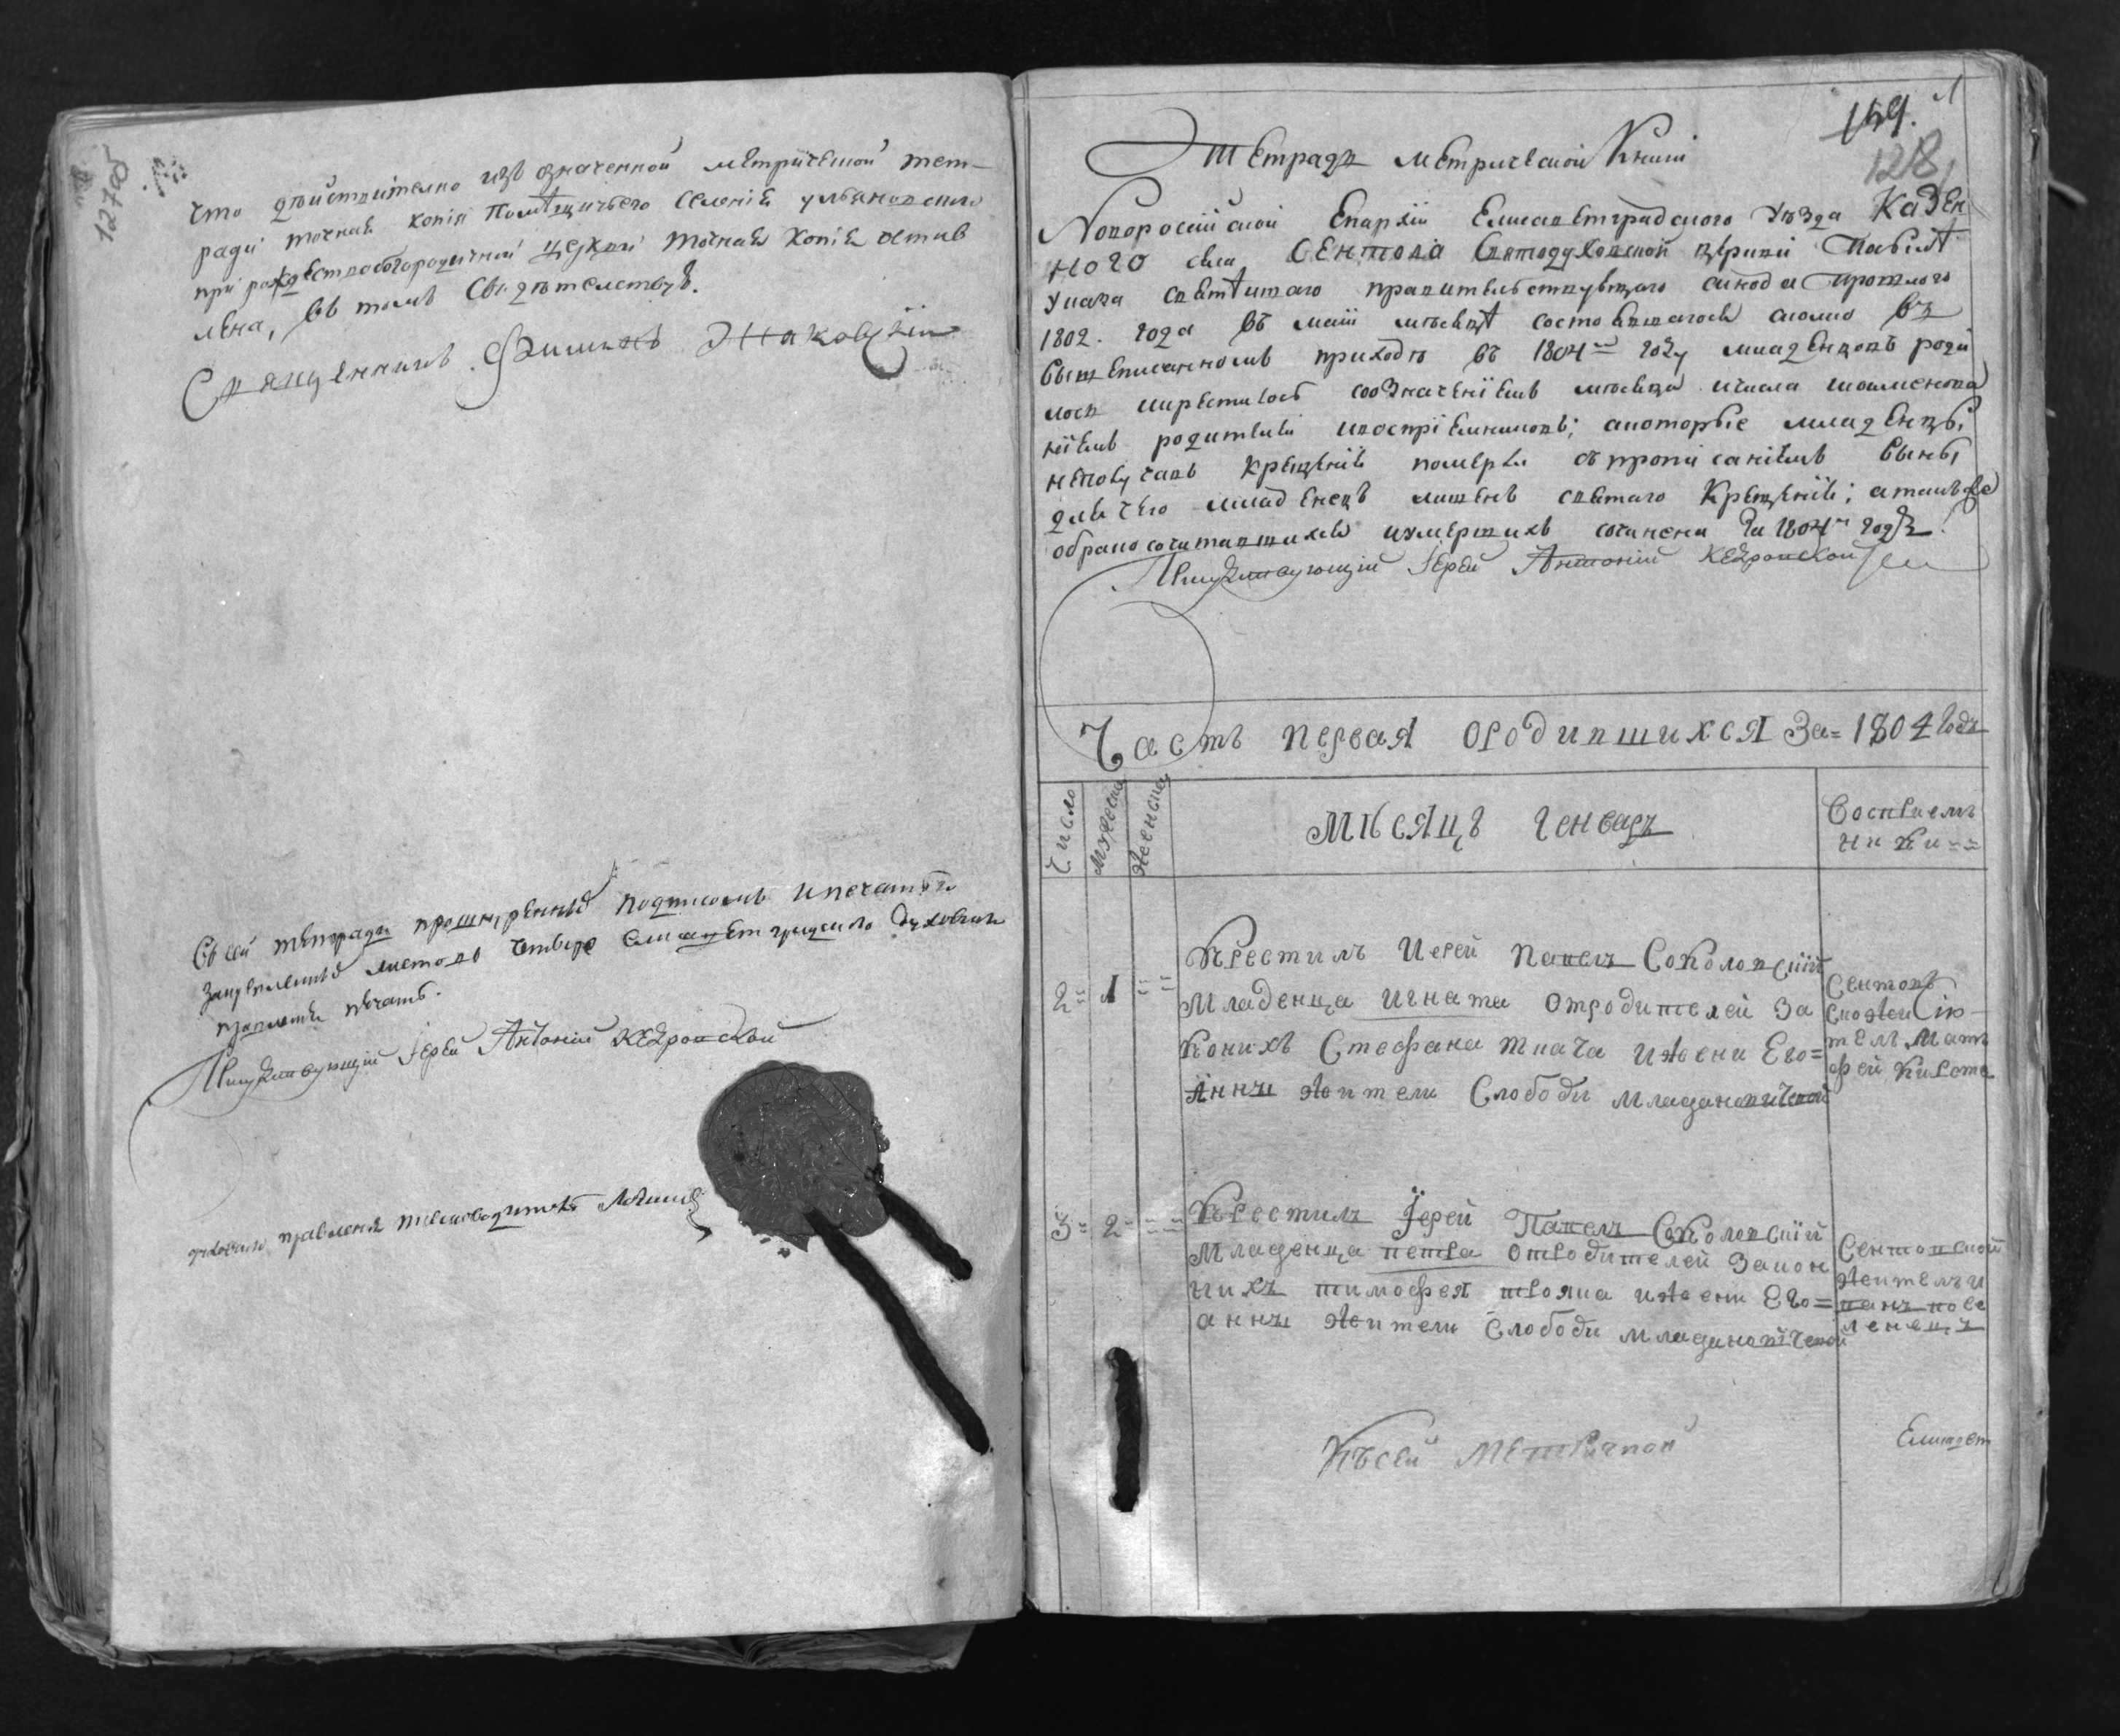 127об
что дѣйствително изъ означенной метрической тет-
ради точная копія помѣщичьего селенія ульяновского
при рождествобогородичной церкви точная копія остав
лена, въ томъ свидѣтелствую.
Священникъ
Въ сей тетради прошнуренныхъ подписомъ и печатью
листовъ четыре елисаветградского духовнаго
правленія печать.
Присудствующій Іерей Антоній Кедровской
духовнаго правленія писмоводитель
149. 1
128
Тетрадь метрической Книги
Новоросійской Епархіи Елисаветградского уѣзда Казен
ного села Сентова Святодуховской церкви По силѣ
указа святѣйшаго правительствующаго синода прошлого
1802. года въ маіи мѣсяцѣ состоявшагося сколко въ
вышеписанномъ приходѣ въ 1804мъ году младенцовъ роди
лося и крестилось со означеніемъ мѣсяца и числа и поименова
ніемъ родителей и воспріемниковъ; а которые младенцы
неполучавъ крещенія померли съ прописаніемъ вины,
для чего младенецъ лишенъ святаго Крещенія; а такъ же
о бракосочитавшихся и умершихъ сочинена за 1804й годъ.
Присудствующій Іерей Антоній Кедровской
Часть первая о родившихся За= 1804 годъ
Число
Мужеска
Женска
Мѣсяцъ Генварь
Восприем
ники==
2= 1 ==
Крестилъ Иерей Павелъ Соколовскій
Младенца Игната от родителей За
Коникъ Стефана ткача и жени Его=
Анны жители Слободи Младановичевой
Сентовъ
ской жи
тель Мат
фей
3= 2= ==
Крестилъ Іерей Павелъ Соколовскій
Младенца петра от родителей Закон
никъ тимофея трояна и жени Его=
анны жители слободи Младанови чевой
Сентовской
житель и
ванъ посе
ленецъ
Къ сей Метричной
Елисавет